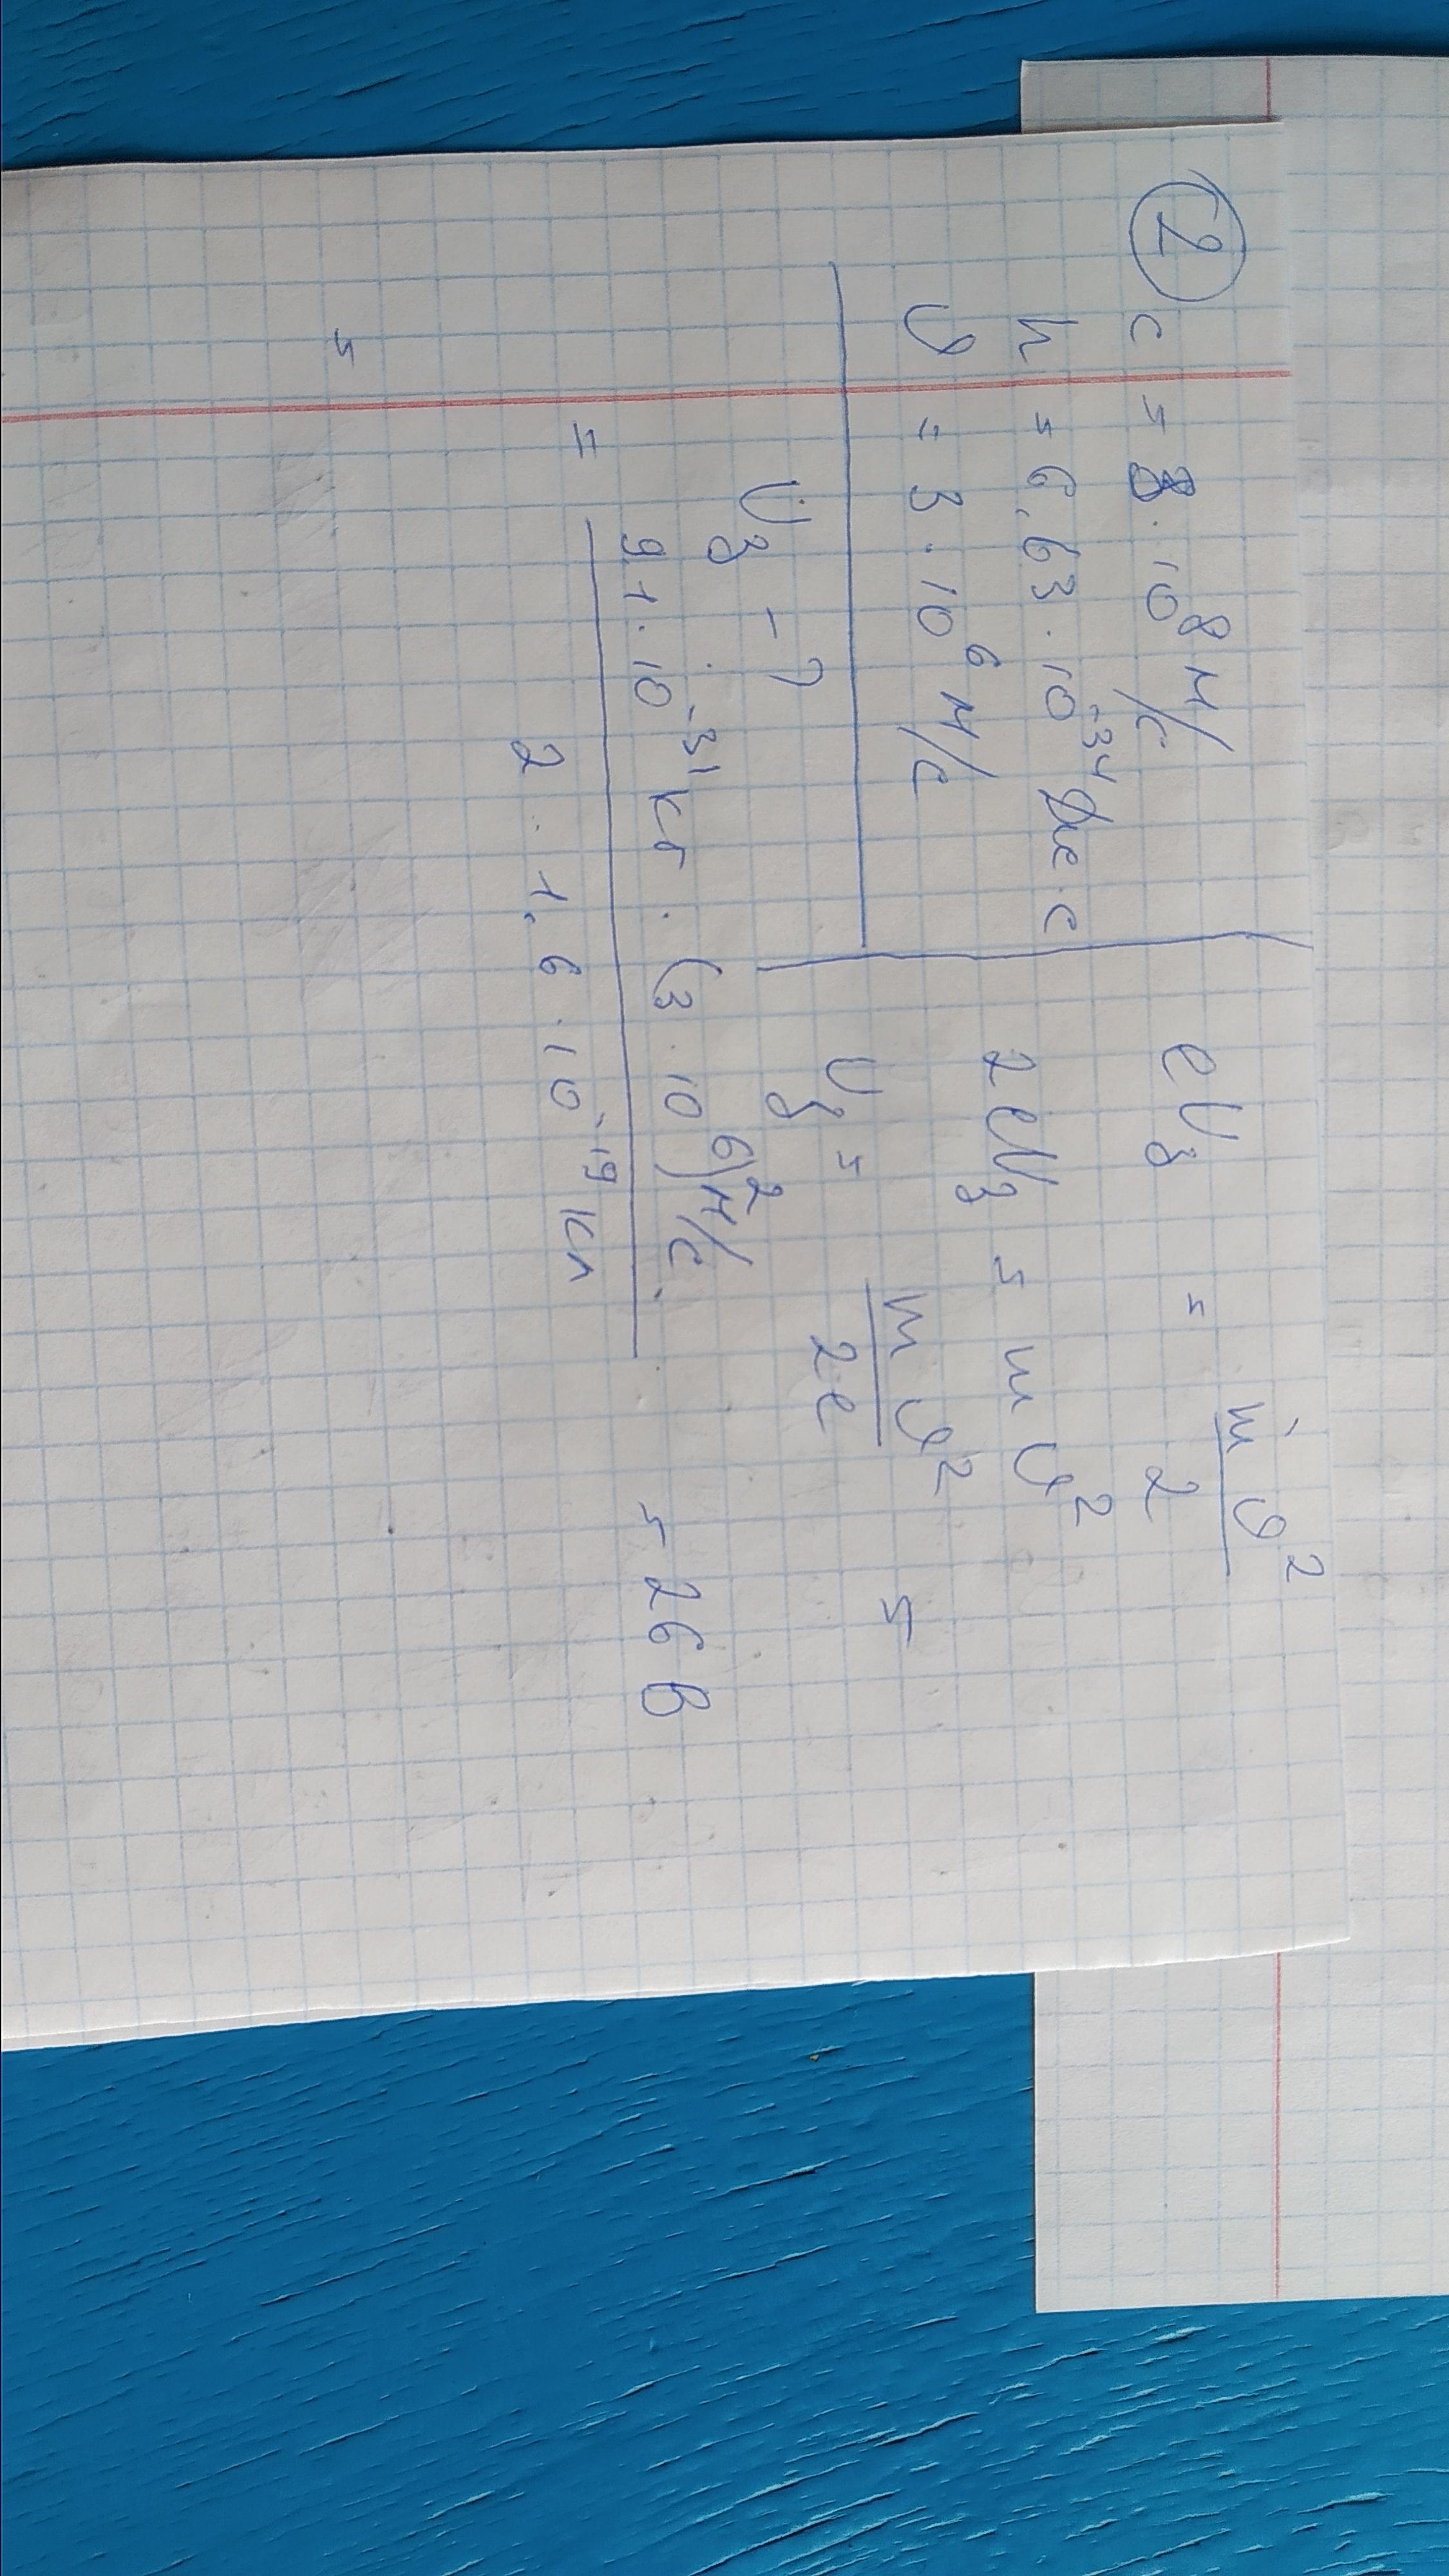 ② c = 3 · 10⁸ м/с
h = 6,63 · 10⁻³⁴ Дж · с
υ = 3 · 10⁶ м/с
U₃ - ?
eU₃ = mυ²/2
2eU₃ = mυ²
U₃ = mυ²/2e =
= 9,1 · 10⁻³¹ кг · (3 · 10⁶)² м/с / 2 · 1,6 · 10⁻¹⁹ Кл = 26 В
=